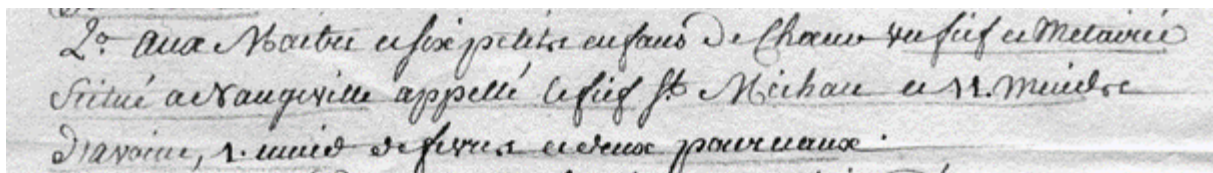 2.o aux Maitre et six petits enfans De Choeur un fief et Metairie
Scitué a Naugeville appellé le fief St. Michau et 11. muidz
D'avoine, 1. muid de feves et deux pourceaux.